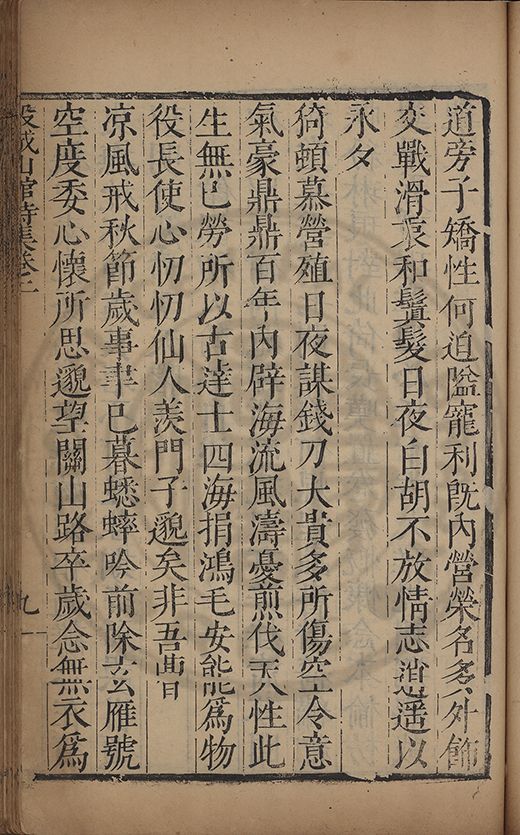 道旁子矯性何迫隘寵利旣內營榮名多外飾
交戰滑衷和鬢髮日夜白胡不放情志逍遥以
永夕
猗頓慕營殖日夜謀錢刀大貴多所傷空令意
氣豪鼎鼎百年內辟海流風濤憂煎伐天性此
生無已勞所以古達士四海捐鴻毛安能爲物
役長使心忉忉仙人羡門子邈矣非吾曹
凉風戒秋節歲事聿已暮蟋蟀吟前除玄雁號
空度委心懷所思邈望關山路卒歲念無衣爲
山館詩集卷二
九